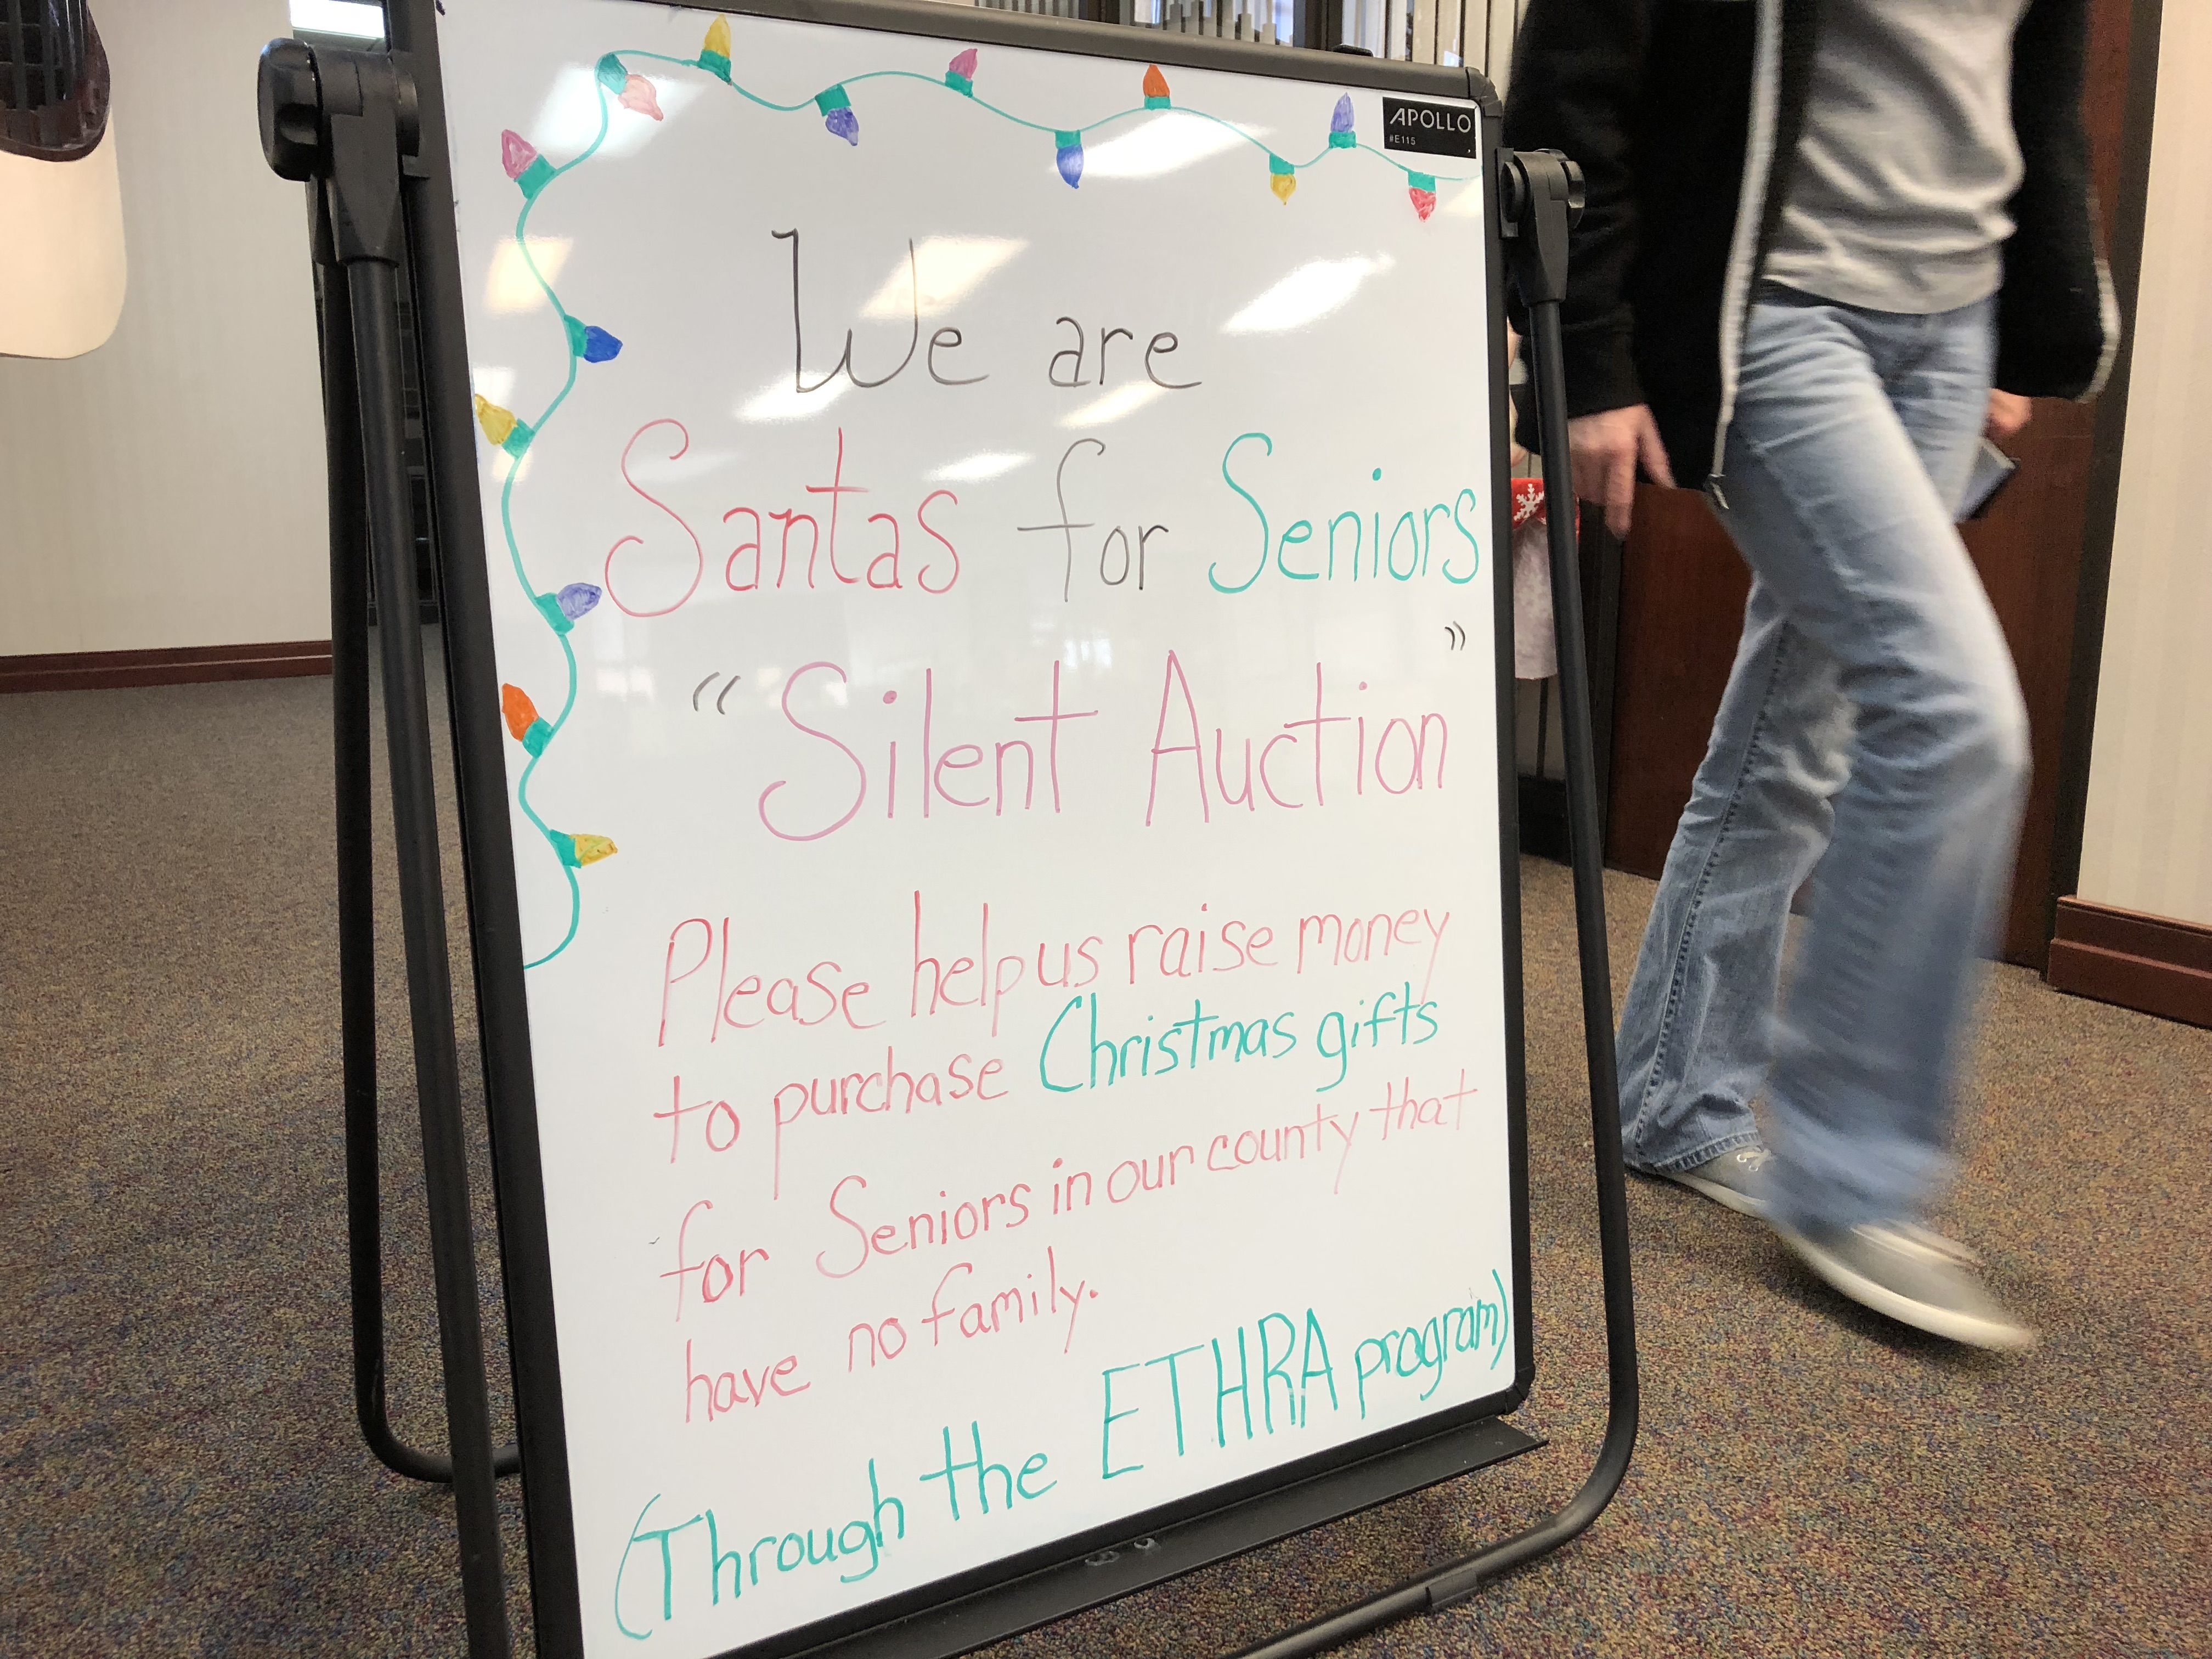 APOLLO
#E115
We are
Santas for Seniors
"Silent Auction"
Please help us raise money
to purchase Christmas gifts
for Seniors in our county that
have no family.
(Through the ETHRA program)